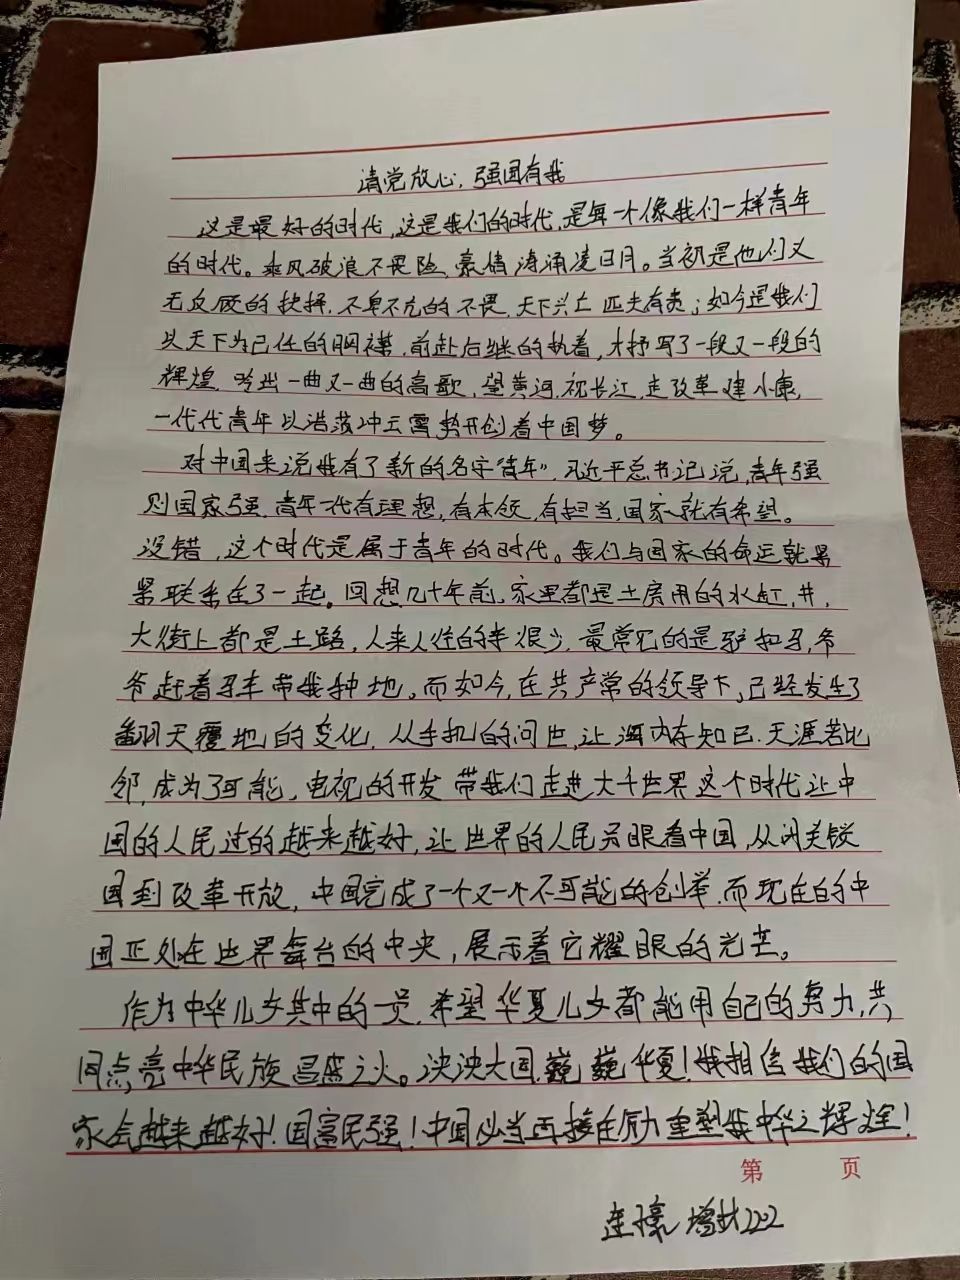 请党放心，强国有我
这是最好的时代，这是我们的时代，是每一个像我们一样青年
的时代。乘风破浪不畏险，豪情涛涌凌日月。当初是他们义
无反顾的抉择，不卑不亢的不畏，天下兴亡匹夫有责；如今是我们
以天下为己任的胸襟，前赴后继的执着，才抒写了一段又一段的
辉煌，吟出一曲又一曲的高歌，望黄河，视长江，走改革建小康，
一代代青年以浩荡冲云霄势开创着中国梦。
对中国来说我有了新的名字"青年"，习近平总书记说，青年强
则国家强，青年一代有理想，有本领，有担当，国家就有希望。
没错，这个时代是属于青年的时代。我们与国家的命运就累
累联系在了一起。回想几十年前，家里都是土房用的水缸，井，
大街上都是土路，人来人往的车很少，最常见的是驴和马，爷
爷赶着马车带我种地。而如今，在共产党的领导下，已经发生了
翻天覆地的变化，从手机的问世，让海内存知己，天涯若比
邻，成为了可能，电视的开发带我们走进大千世界这个时代让中
国的人民过的越来越好，让世界的人民另眼看中国，从闭关锁
国到改革开放，中国完成了一个又一个不可能的创举，而现在的中
国正处在世界舞台的中央，展示着它耀眼的光芒。
作为中华儿女其中的一员，希望华夏儿女都能用自己的努力，共
同点亮中华民族昌盛之火。泱泱大国，巍巍华夏！我相信我们的国
家会越来越好！国富民强！中国必当再接在励重塑我中华之辉煌！
第 页
2202